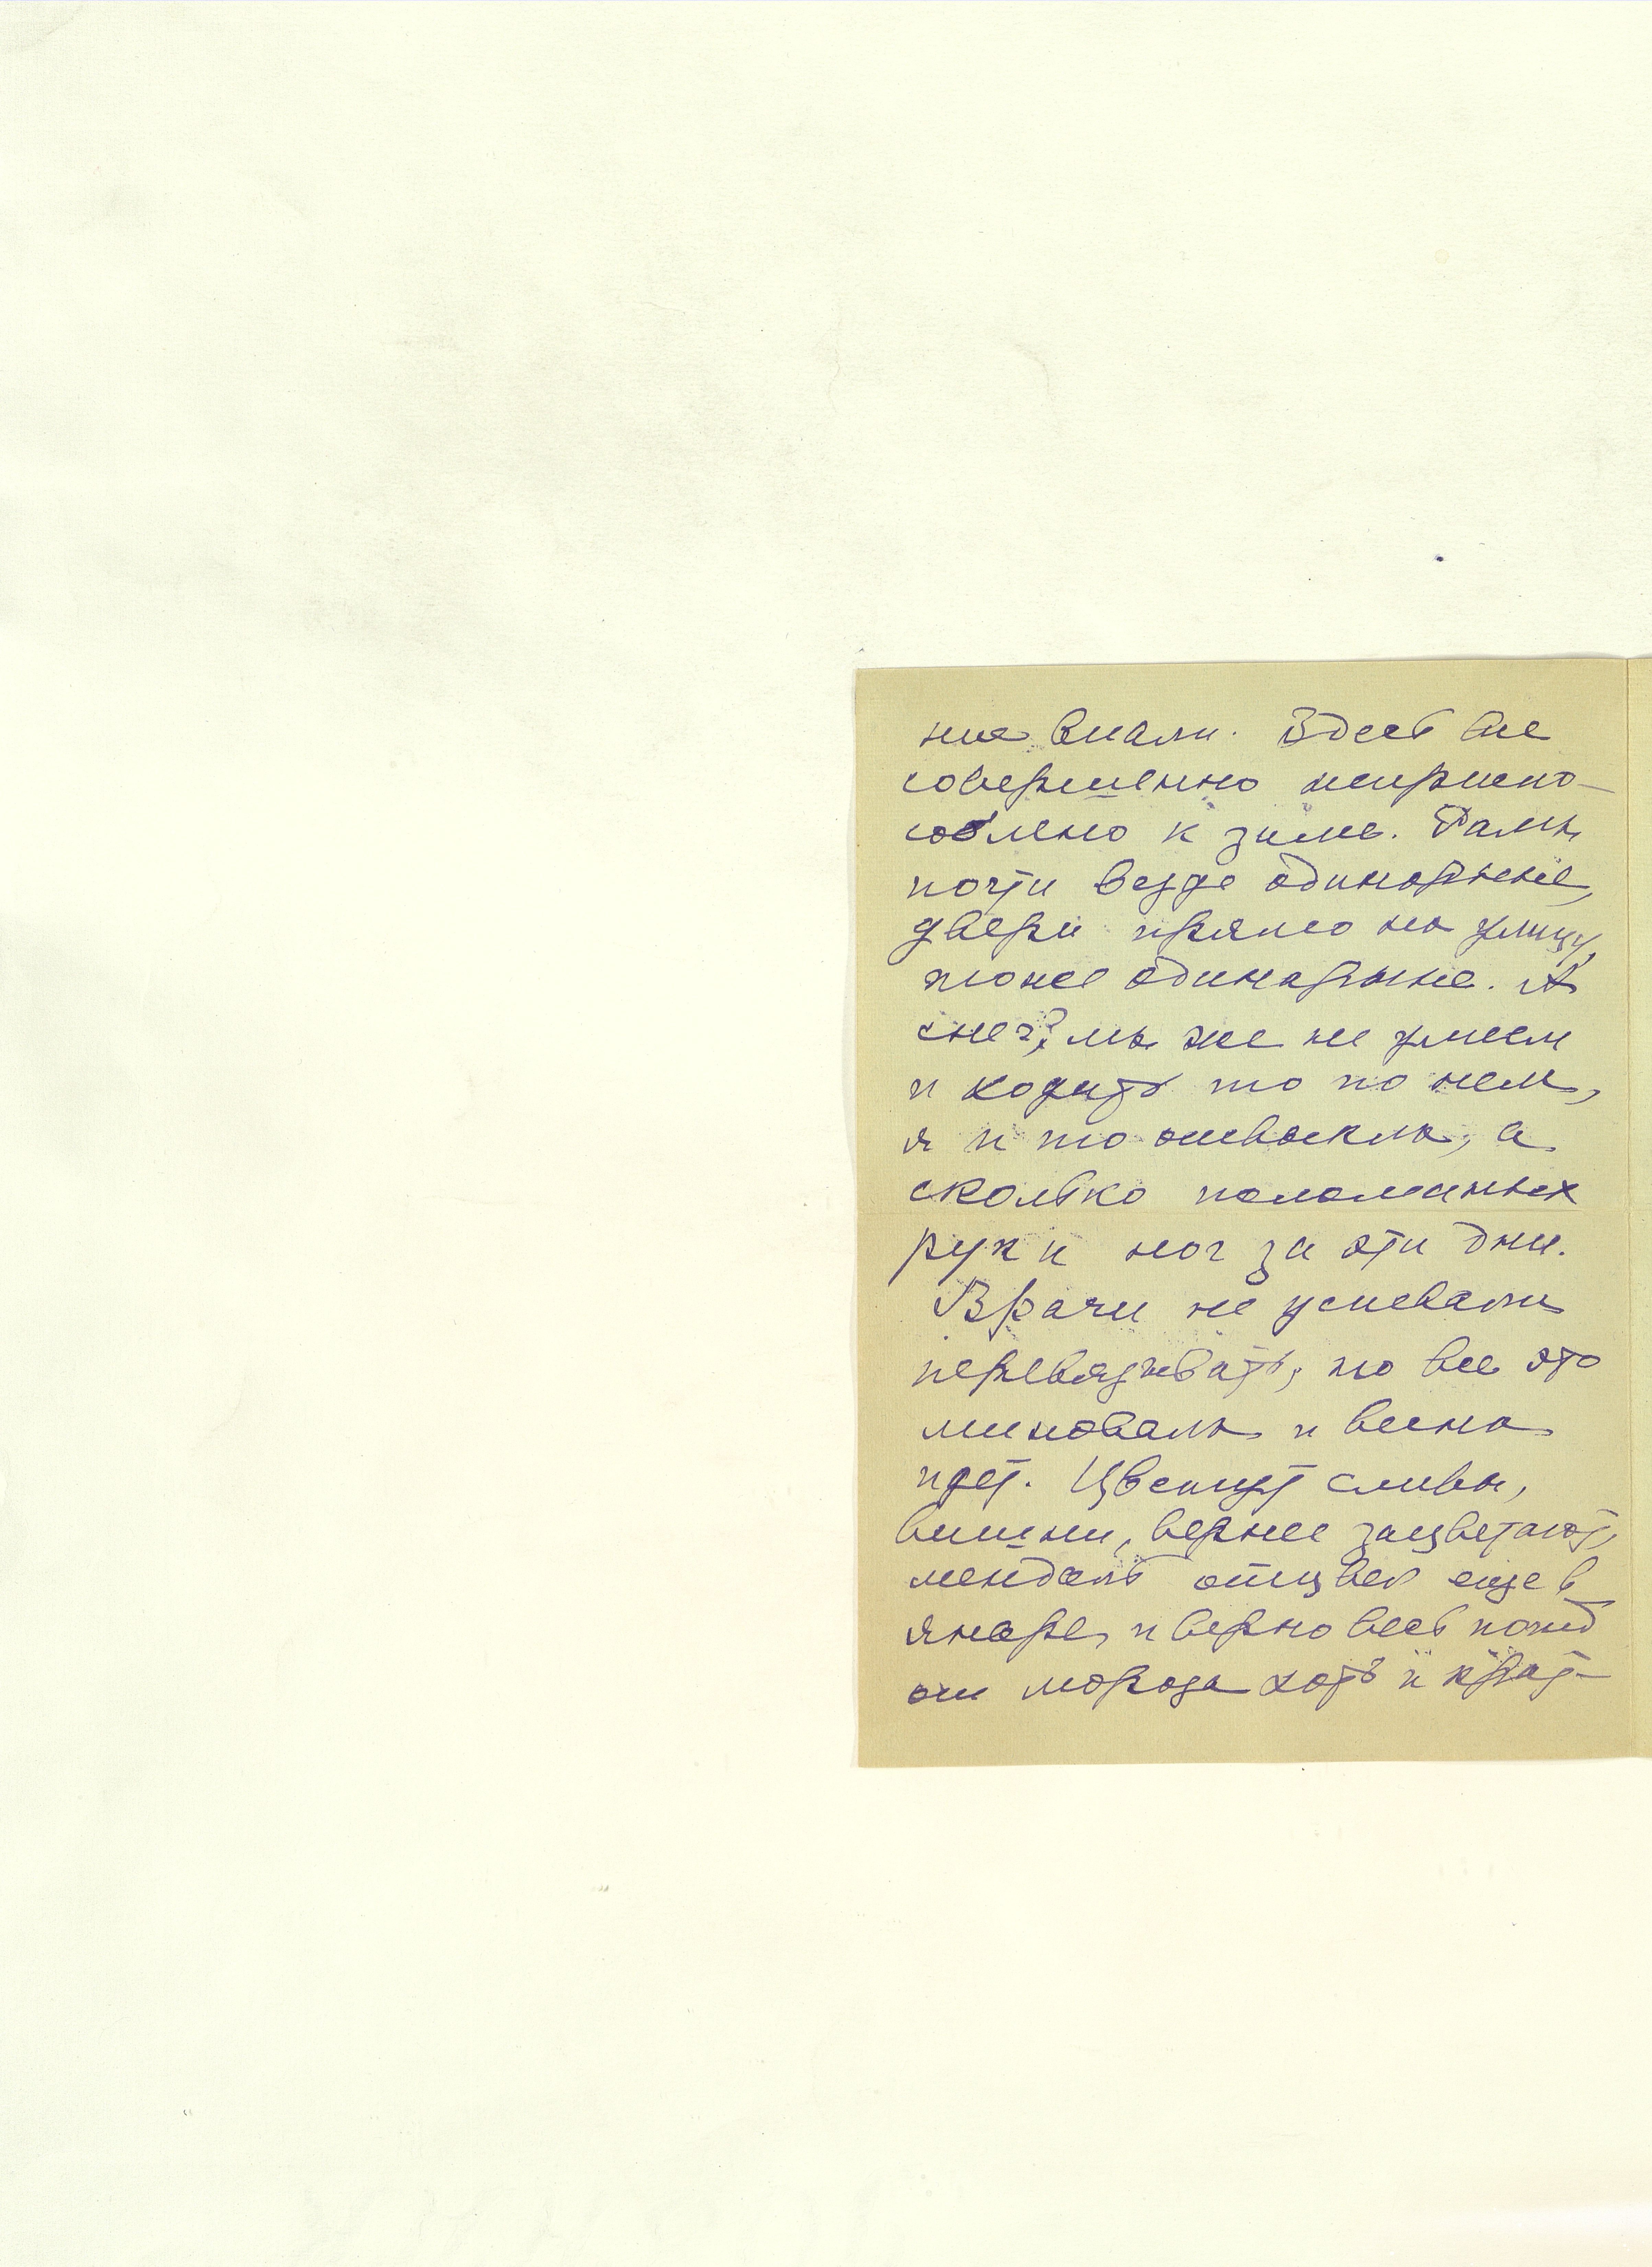 ния знали. Здесь все
совершенно неприспо-
соблено к зиме. Рамы
почти везде одинарные,
двери прямо на улицу,
тоже одинарные. А
снег? мы же не умеем
и ходить то по нем,
я и то отвыкла, а
сколько поломанных
рук и ног за эти дни.
Врачи не успевали
перевязывать, но все это
миновало и весна
идет. Цветут сливы,
вишни, вернее зацветают,
миндаль отцвел еще в
январе, и верно весь погиб
от мороза хоть и крат-